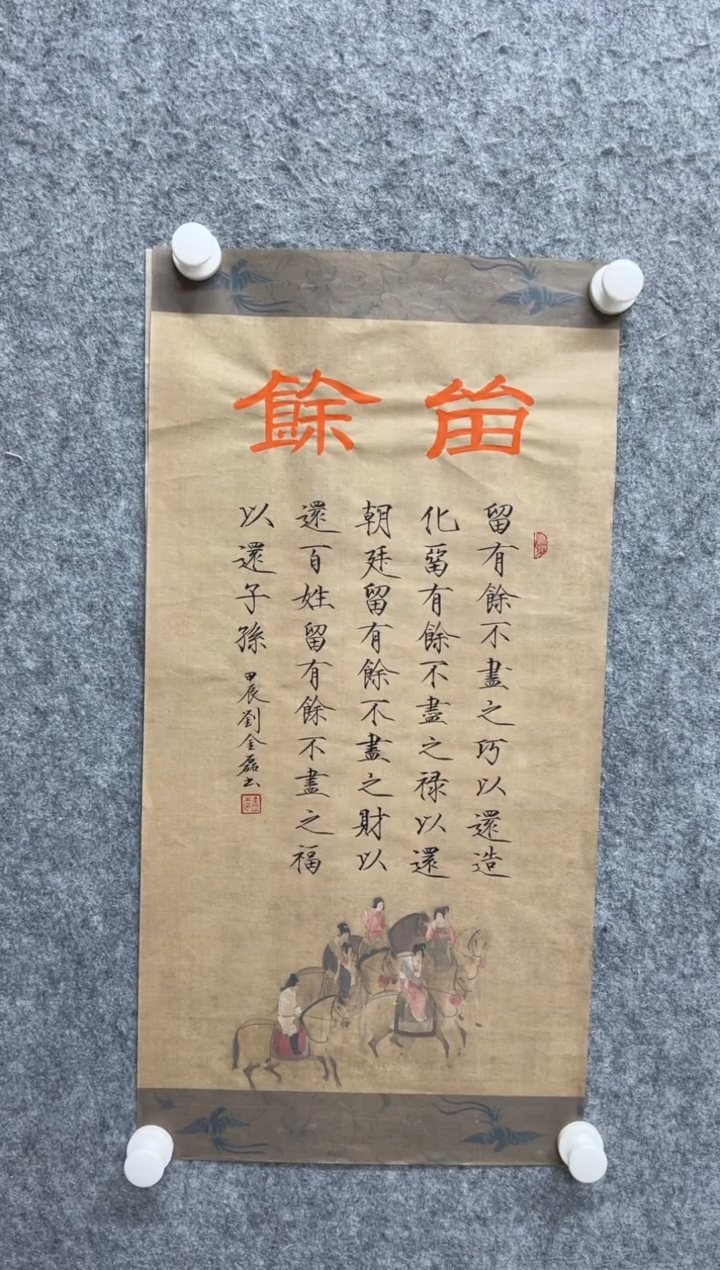 留餘
留有餘不盡之巧以還造
化留有餘不盡之祿以還
朝廷留有餘不盡之財以
還百姓留有餘不盡之福
以還子孫
甲辰劉金磊书